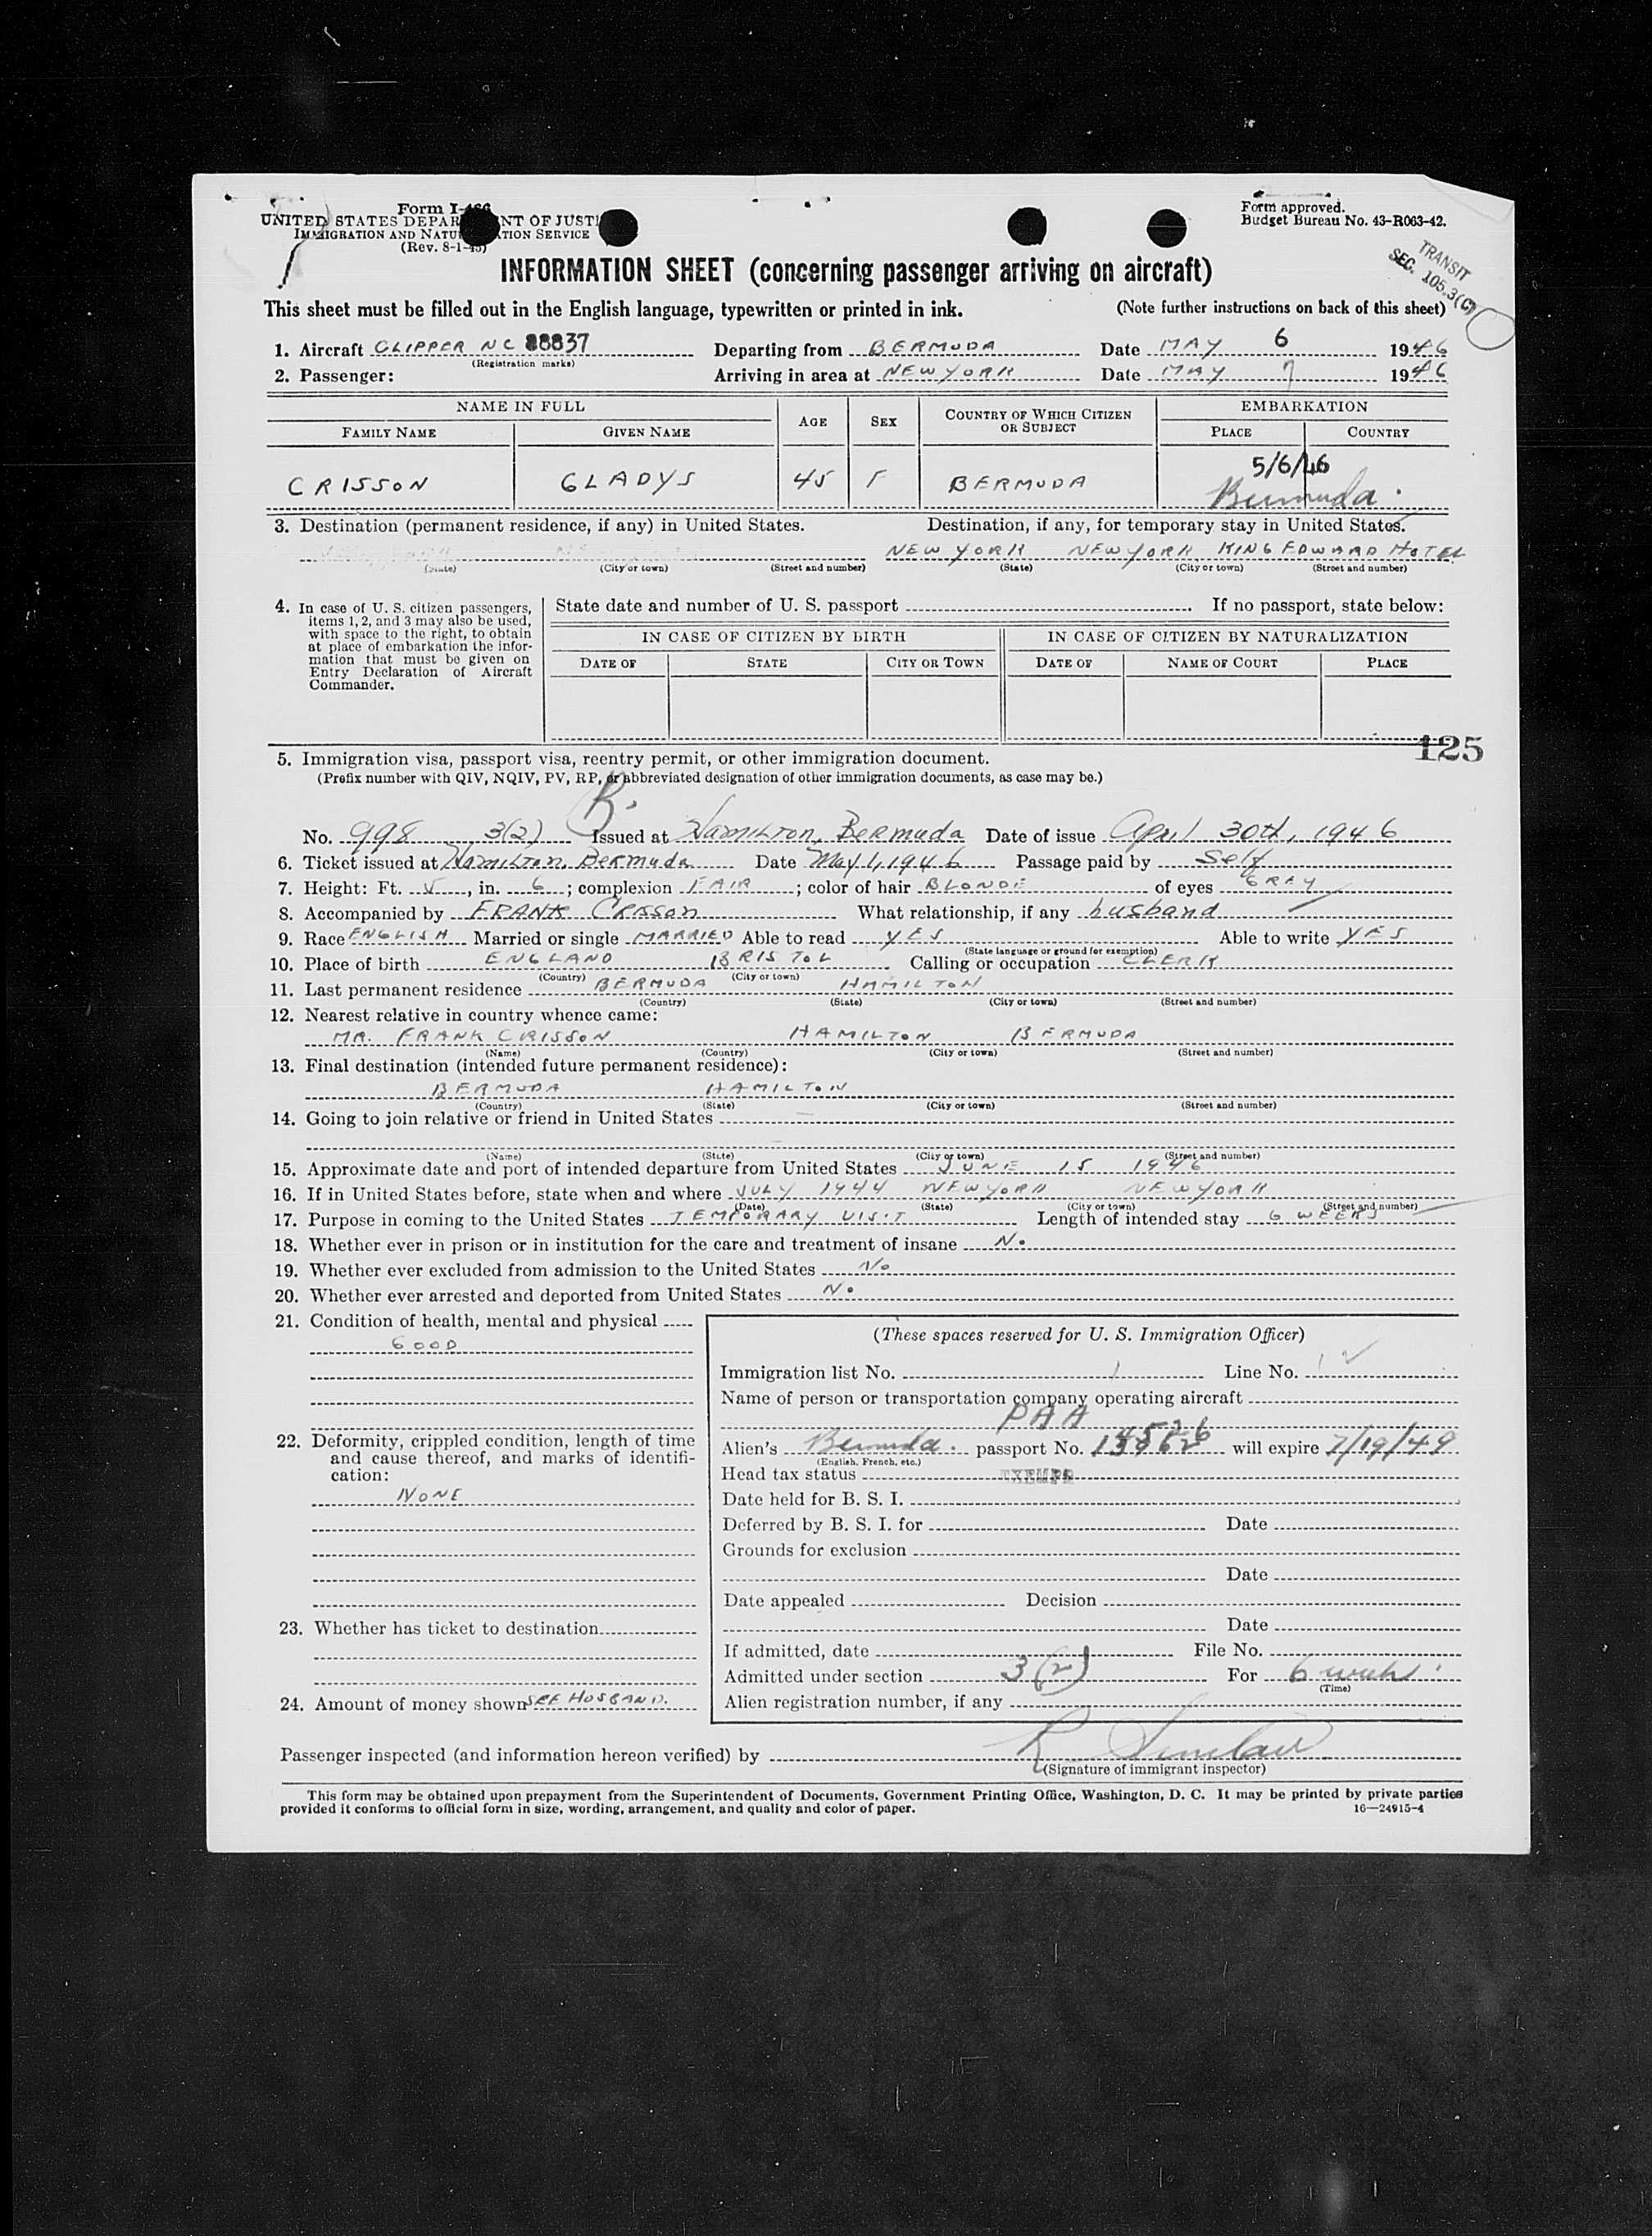 Form I-466
UNITED STATES DEPAR NT OF JUSTI
IMMIGRATION AND NATU TION SERVICE
(Rev. 8-1-45)
Form approved.
Budget Bureau No. 43-R063-42.
TRANSIT
SEC. 105.3(C)
INFORMATION SHEET (concerning passenger arriving on aircraft)
This sheet must be filled out in the English language, typewritten or printed in ink. (Note further instructions on back of this sheet)
1. Aircraft CLIPPER NC 88837 Departing from BERMUDA Date MAY 6 1946
(Registration marks)
2. Passenger: Arriving in area at NEW YORK Date MAY 7 1946
NAME IN FULL AGE SEX COUNTRY OF WHICH CITIZEN OR SUBJECT EMBARKATION
FAMILY NAME GIVEN NAME PLACE COUNTRY
5/6/46
CRISSON GLADYS 45 F BERMUDA Bermuda.
3. Destination (permanent residence, if any) in United States. Destination, if any, for temporary stay in United States.
NEW YORK NEW YORK KING EDWARD HOTEL
(State) (City or town) (Street and number) (State) (City or town) (Street and number)
4. In case of U. S. citizen passengers, items 1, 2, and 3 may also be used, with space to the right, to obtain at place of embarkation the information that must be given on Entry Declaration of Aircraft Commander.
State date and number of U. S. passport If no passport, state below:
IN CASE OF CITIZEN BY BIRTH IN CASE OF CITIZEN BY NATURALIZATION
DATE OF STATE CITY OR TOWN DATE OF NAME OF COURT PLACE
125
5. Immigration visa, passport visa, reentry permit, or other immigration document.
(Prefix number with QIV, NQIV, PV, RP, or abbreviated designation of other immigration documents, as case may be.)
No. 998 3(2) Issued at Hamilton, Bermuda Date of issue April 30th, 1946
6. Ticket issued at Hamilton, Bermuda Date May 1, 1946 Passage paid by Self
7. Height: Ft. 5, in. 6; complexion FAIR; color of hair BLONDE of eyes GREY
8. Accompanied by FRANK CRISSON What relationship, if any husband
9. Race ENGLISH Married or single MARRIED Able to read YES Able to write YES
(State language or ground for exemption)
10. Place of birth ENGLAND BRISTOL Calling or occupation CLERK
(Country) (City or town)
11. Last permanent residence BERMUDA HAMILTON
(Country) (State) (City or town) (Street and number)
12. Nearest relative in country whence came:
MR. FRANK CRISSON HAMILTON BERMUDA
(Name) (Country) (City or town) (Street and number)
13. Final destination (intended future permanent residence):
BERMUDA HAMILTON
(Country) (State) (City or town) (Street and number)
14. Going to join relative or friend in United States
(Name) (State) (City or town) (Street and number)
15. Approximate date and port of intended departure from United States JUNE 15 1946
16. If in United States before, state when and where JULY 1944 NEW YORK NEW YORK
(Date) (State) (City or town) (Street and number)
17. Purpose in coming to the United States TEMPORARY VISIT Length of intended stay 6 WEEKS
18. Whether ever in prison or in institution for the care and treatment of insane No
19. Whether ever excluded from admission to the United States No
20. Whether ever arrested and deported from United States No
21. Condition of health, mental and physical
GOOD
22. Deformity, crippled condition, length of time and cause thereof, and marks of identification:
NONE
23. Whether has ticket to destination
24. Amount of money shown SEE HUSBAND.
(These spaces reserved for U. S. Immigration Officer)
Immigration list No. 1 Line No. 12
Name of person or transportation company operating aircraft
PAA
Alien's Bermuda. passport No. will expire 7/19/49
(English, French, etc.)
Head tax status EXEMPT
Date held for B. S. I.
Deferred by B. S. I. for Date
Grounds for exclusion
Date
Date appealed Decision
Date
If admitted, date File No.
Admitted under section 3(2) For 6 weeks
(Time)
Alien registration number, if any
Passenger inspected (and information hereon verified) by R Sinclair
(Signature of immigrant inspector)
This form may be obtained upon prepayment from the Superintendent of Documents, Government Printing Office, Washington, D. C. It may be printed by private parties
provided it conforms to official form in size, wording, arrangement, and quality and color of paper. 16—24915-4